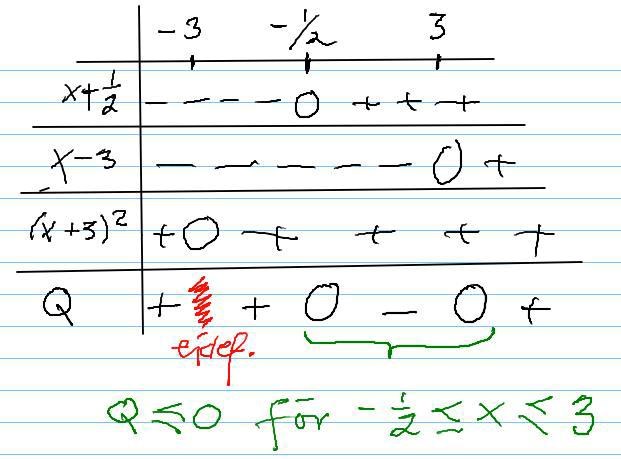 -3 -1/2 3
x+1/2 - - - - 0 + + +
x-3 - - - - - 0 +
(x+3)² + 0 + + + +
Q + + 0 - 0 +
ej def.
Q ≤ 0 för -1/2 ≤ x ≤ 3